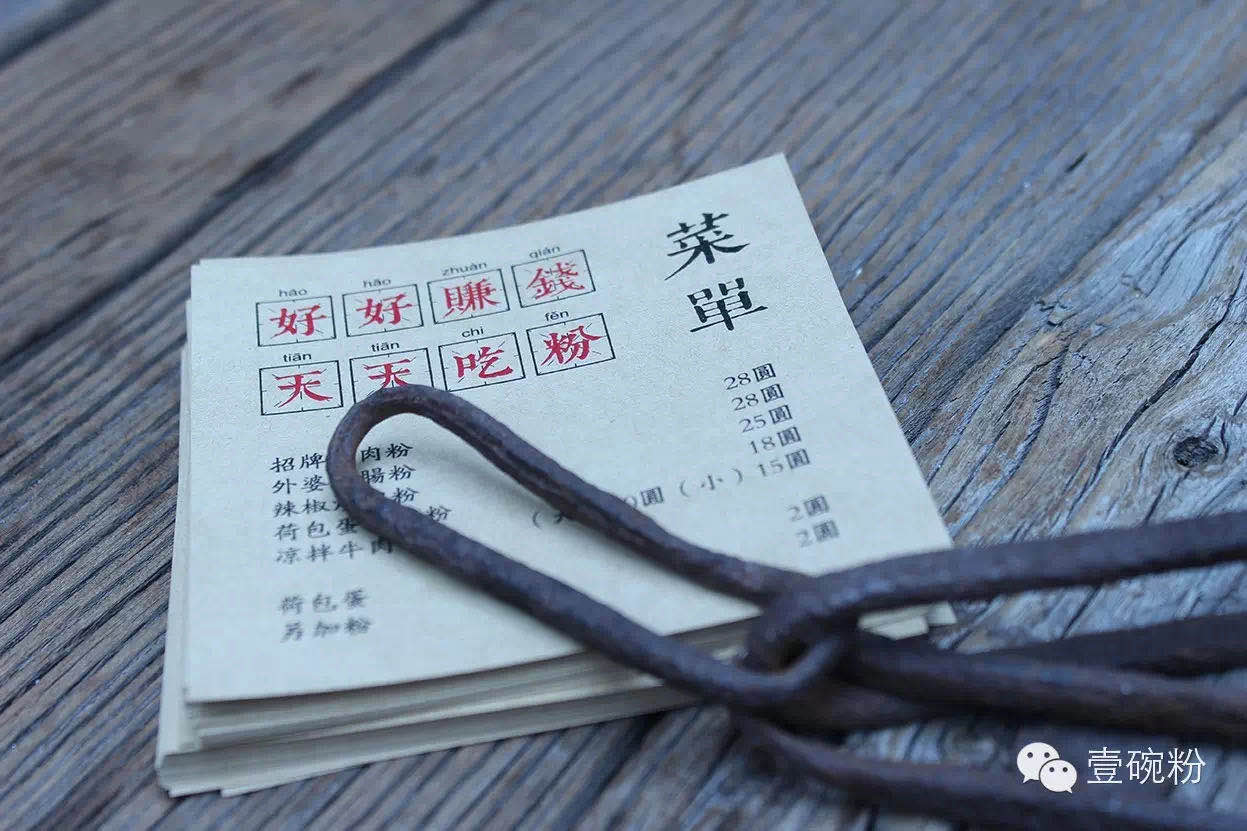 菜單
hǎo hǎo zhuàn qián
好好賺錢
tiān tiān chī fěn
天天吃粉
招牌 肉粉 28圓
外婆 腸粉 28圓
辣椒 粉 25圓
荷包蛋 粉 18圓
凉拌牛肉 圓（小）15圓
荷包蛋 2圓
另加粉 2圓
壹碗粉